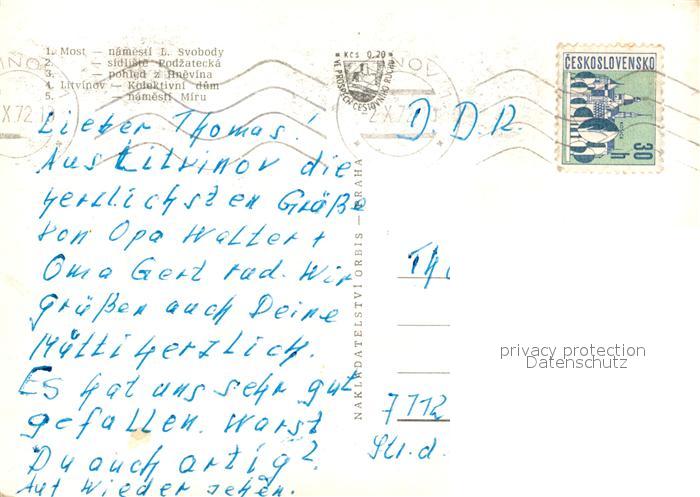 1. Most — náměstí L. Svobody
2. — sídliště Podžatecká
3. — pohled z Hněvína
4. Litvínov — Kolektivní dům
5. — náměstí Míru
Kčs 0,20
VE PROSPĚCH ČESTOVNÍHO RUCHU
X.72
-2.X.7
ČESKOSLOVENSKO
30 h
D. D. R.
Lieber Thomas!
Aus Litvinov die
herzlichsten Grüße
von Opa Walter +
Oma Gertrud. Wir
grüßen auch Deine
Mutti herzlich.
Es hat uns sehr gut
gefallen. Warst
Du auch artig?
Auf Wiedersehen.
NAKLADATELSTVÍ ORBIS — PRAHA
Th
7712
Str. d.
privacy protection
Datenschutz